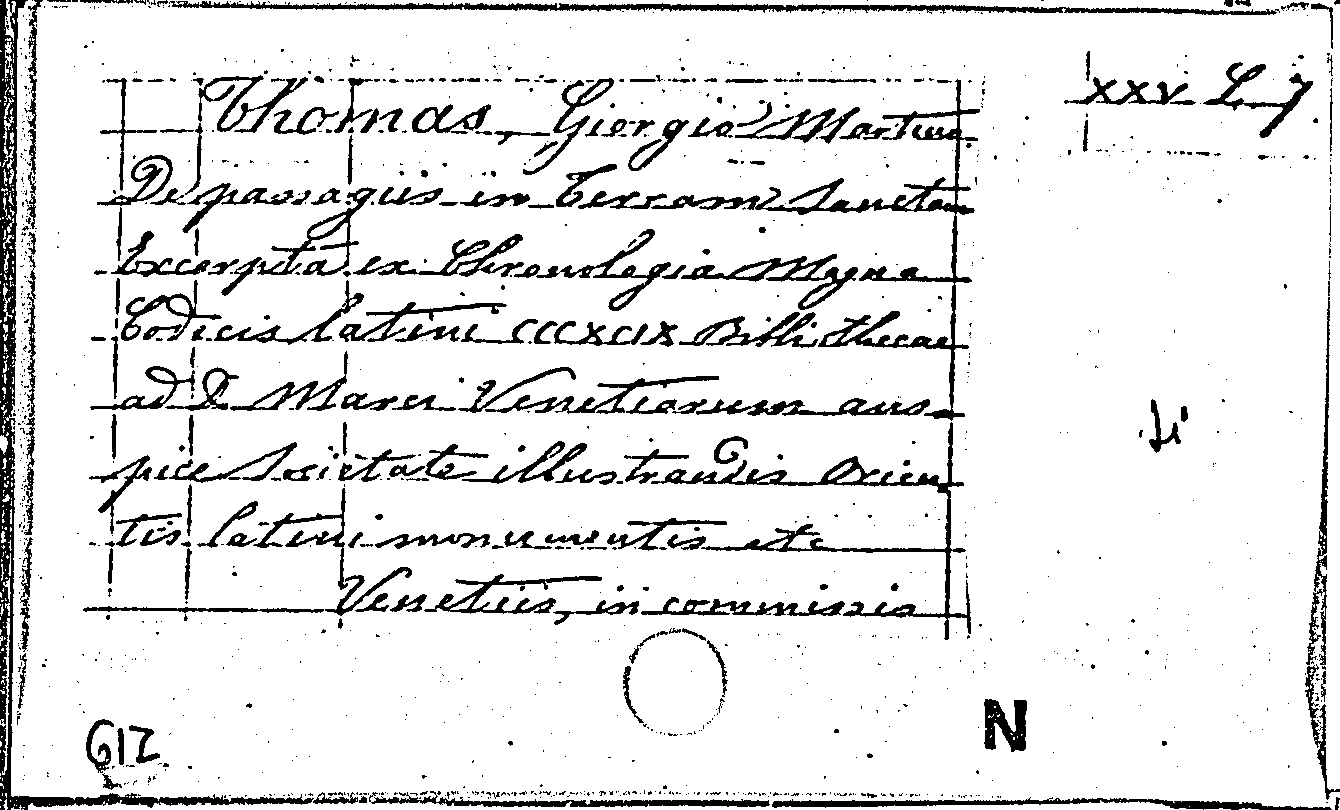 XXV L 7
Thomas, Giorgio Martino
De passagiis in Terram Sanctam
Excerpta ex Chronologia Magna
Codicis latini CCCXCIX Bibliothecae
ad D. Marci Venetiarum aus-
pice Societate illustrandis Orien-
tis latini monumentis etc
Venetiis, in commissis
N